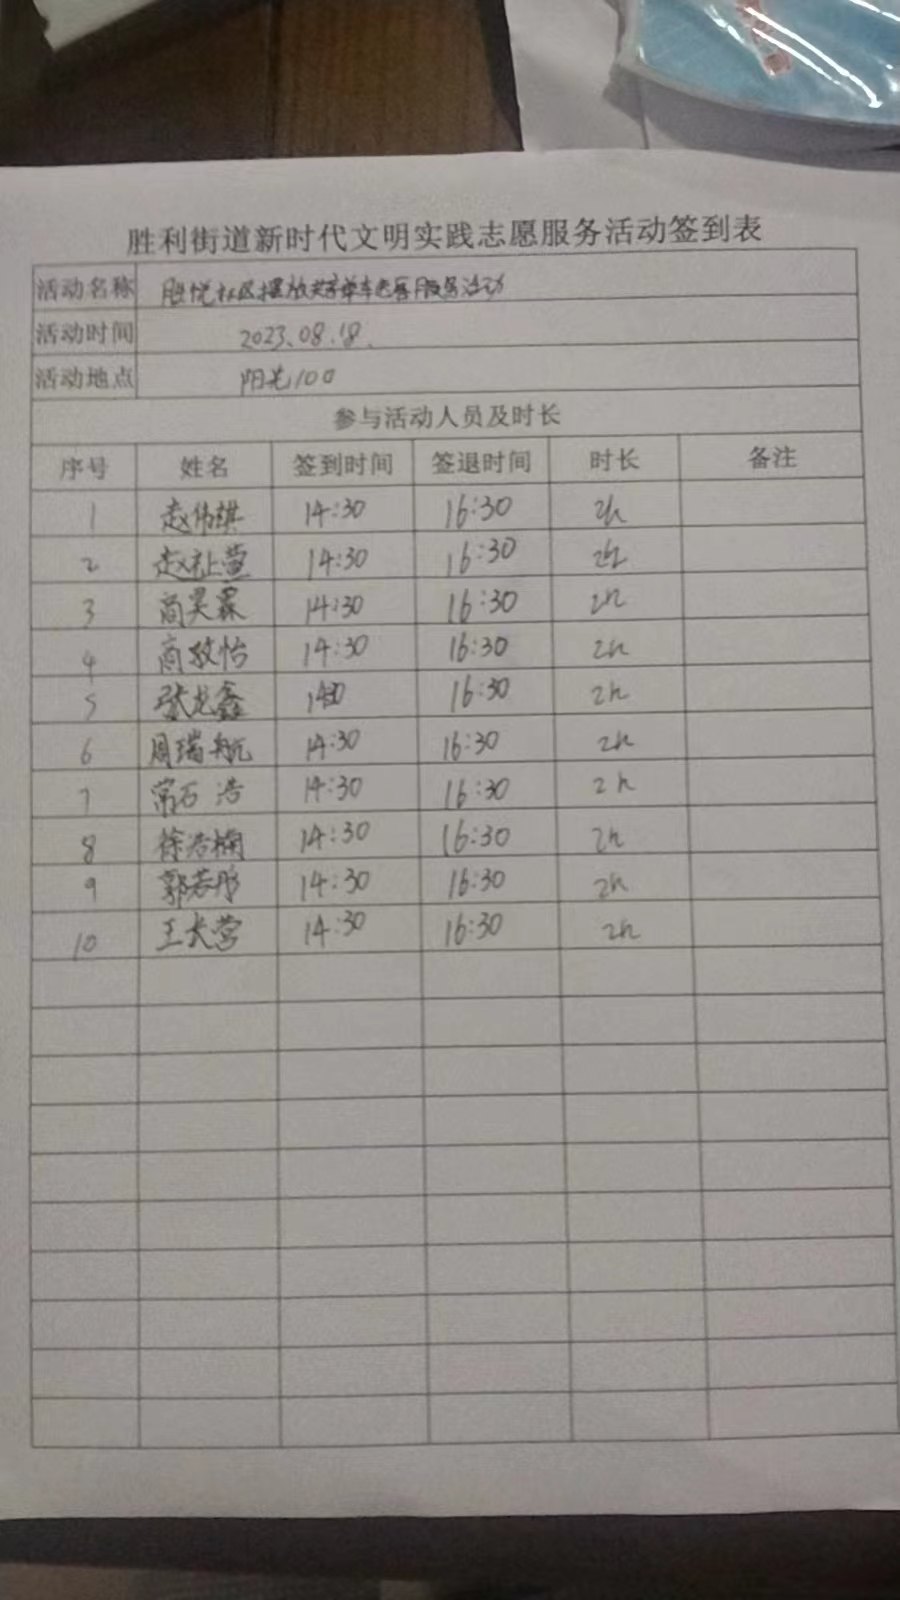 胜利街道新时代文明实践志愿服务活动签到表
活动名称 胜悦社区摆放共享单车志愿服务活动
活动时间 2023.08.18.
活动地点 阳光100
参与活动人员及时长
序号 姓名 签到时间 签退时间 时长 备注
1 赵伟祺 14:30 16:30 2h
2 赵祉萱 14:30 16:30 2h
3 商昊霖 14:30 16:30 2h
4 商敬怡 14:30 16:30 2h
5 张龙鑫 16:30 2h
6 周瑞航 14:30 16:30 2h
7 常石浩 14:30 16:30 2h
8 徐浩楠 14:30 16:30 2h
9 郭若彤 14:30 16:30 2h
10 王长营 14:30 16:30 2h